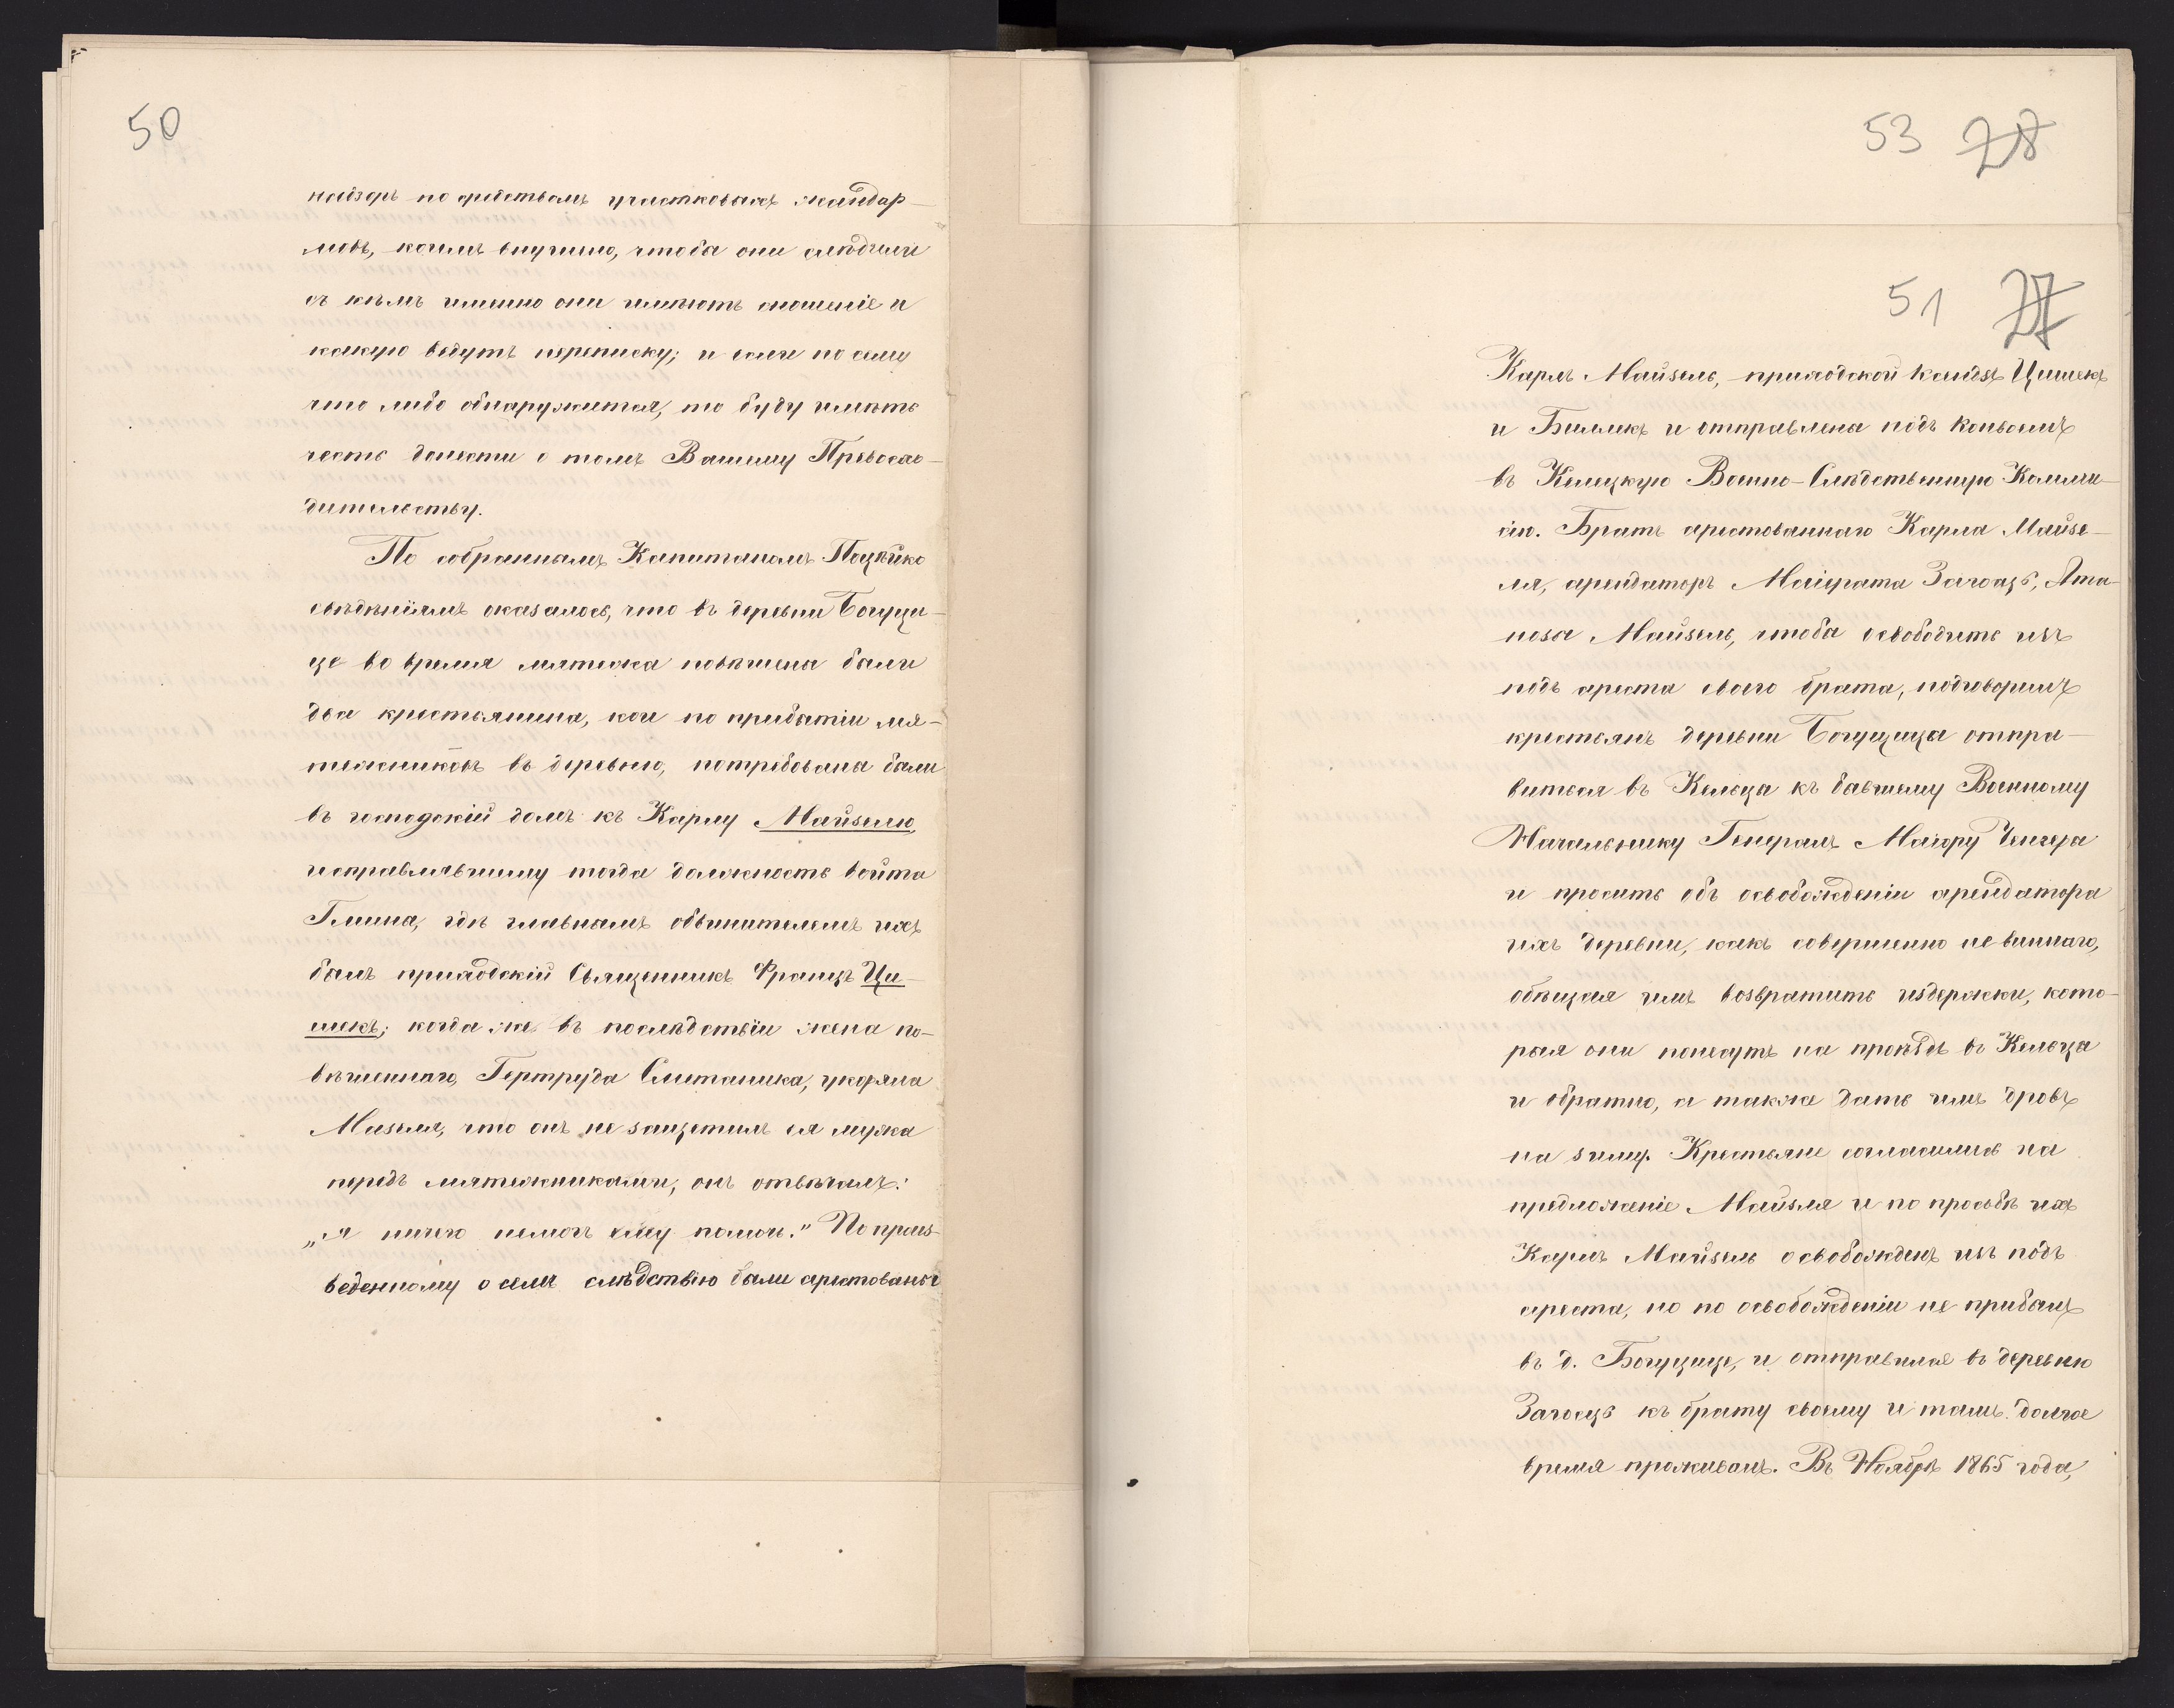 50
надзоръ по средствамъ участковыхъ жандар-
мовъ, коимъ внушено, чтобы они слѣдили
съ кѣмъ именно они имѣютъ сношеніе и
какую ведутъ переписку; и если по сему
что либо обнаружится, то буду имѣть
честь донести о томъ Вашему Превосхо-
дительству.
По собраннымъ Капитаномъ Поцѣйко
свѣдѣніямъ оказалось, что въ деревни Богуци-
це во время мятежа повѣшены были
два крестьянина, кои по прибытіи мя-
тежниковъ въ деревню, потребованы были
въ господскій домъ къ Карлу Майзелю,
исправлявшему тогда должность войта
Гмина, гдѣ главнымъ обвинителемъ ихъ
былъ приходскій Священникъ Францъ Ци-
шекъ; когда же въ послѣдствіи жена по-
вѣшеннаго, Гертруда Слитаника, укоряла
Мазеля, что онъ не защетилъ ея мужа
передъ мятежниками, онъ отвѣчалъ:
„я ничего немогъ ему помочь." По произ-
веденному о семъ слѣдствію были арестованы
53 28
51 27
Карлъ Майзель, приходской ксендзъ Цишекъ
и Билликъ и отправлены подъ конвоемъ
въ Келецкую Военно-Слѣдственную Коммис-
сію. Братъ арестованнаго Карла Майзе-
ля, арендаторъ Маіората Загоацъ, Ата-
назы Майзель, чтобы освободить изъ
подъ ареста своего брата, подговорилъ
крестьянъ деревни Богуцица отпра-
виться въ Кельцы къ бывшему Военному
Начальнику Генералъ Маіору Ченгеры
и просить объ освобожденіи арендатора
ихъ деревни, какъ совершенно не виннаго,
обѣщая имъ возвратить издержки, кото-
рыя они понесутъ на проѣздъ въ Кельцы
и обратно, а также дать имъ дровъ
на зиму. Крестьяне согласились на
предложеніе Майзля и по просьбѣ ихъ
Карлъ Майзель освобожденъ изъ подъ
ареста, но по освобожденіи не прибылъ
въ д. Богуцице, и отправился въ деревню
Загосцъ къ брату своему и тамъ долгое
время проживалъ. Въ Ноябрѣ 1865 года,